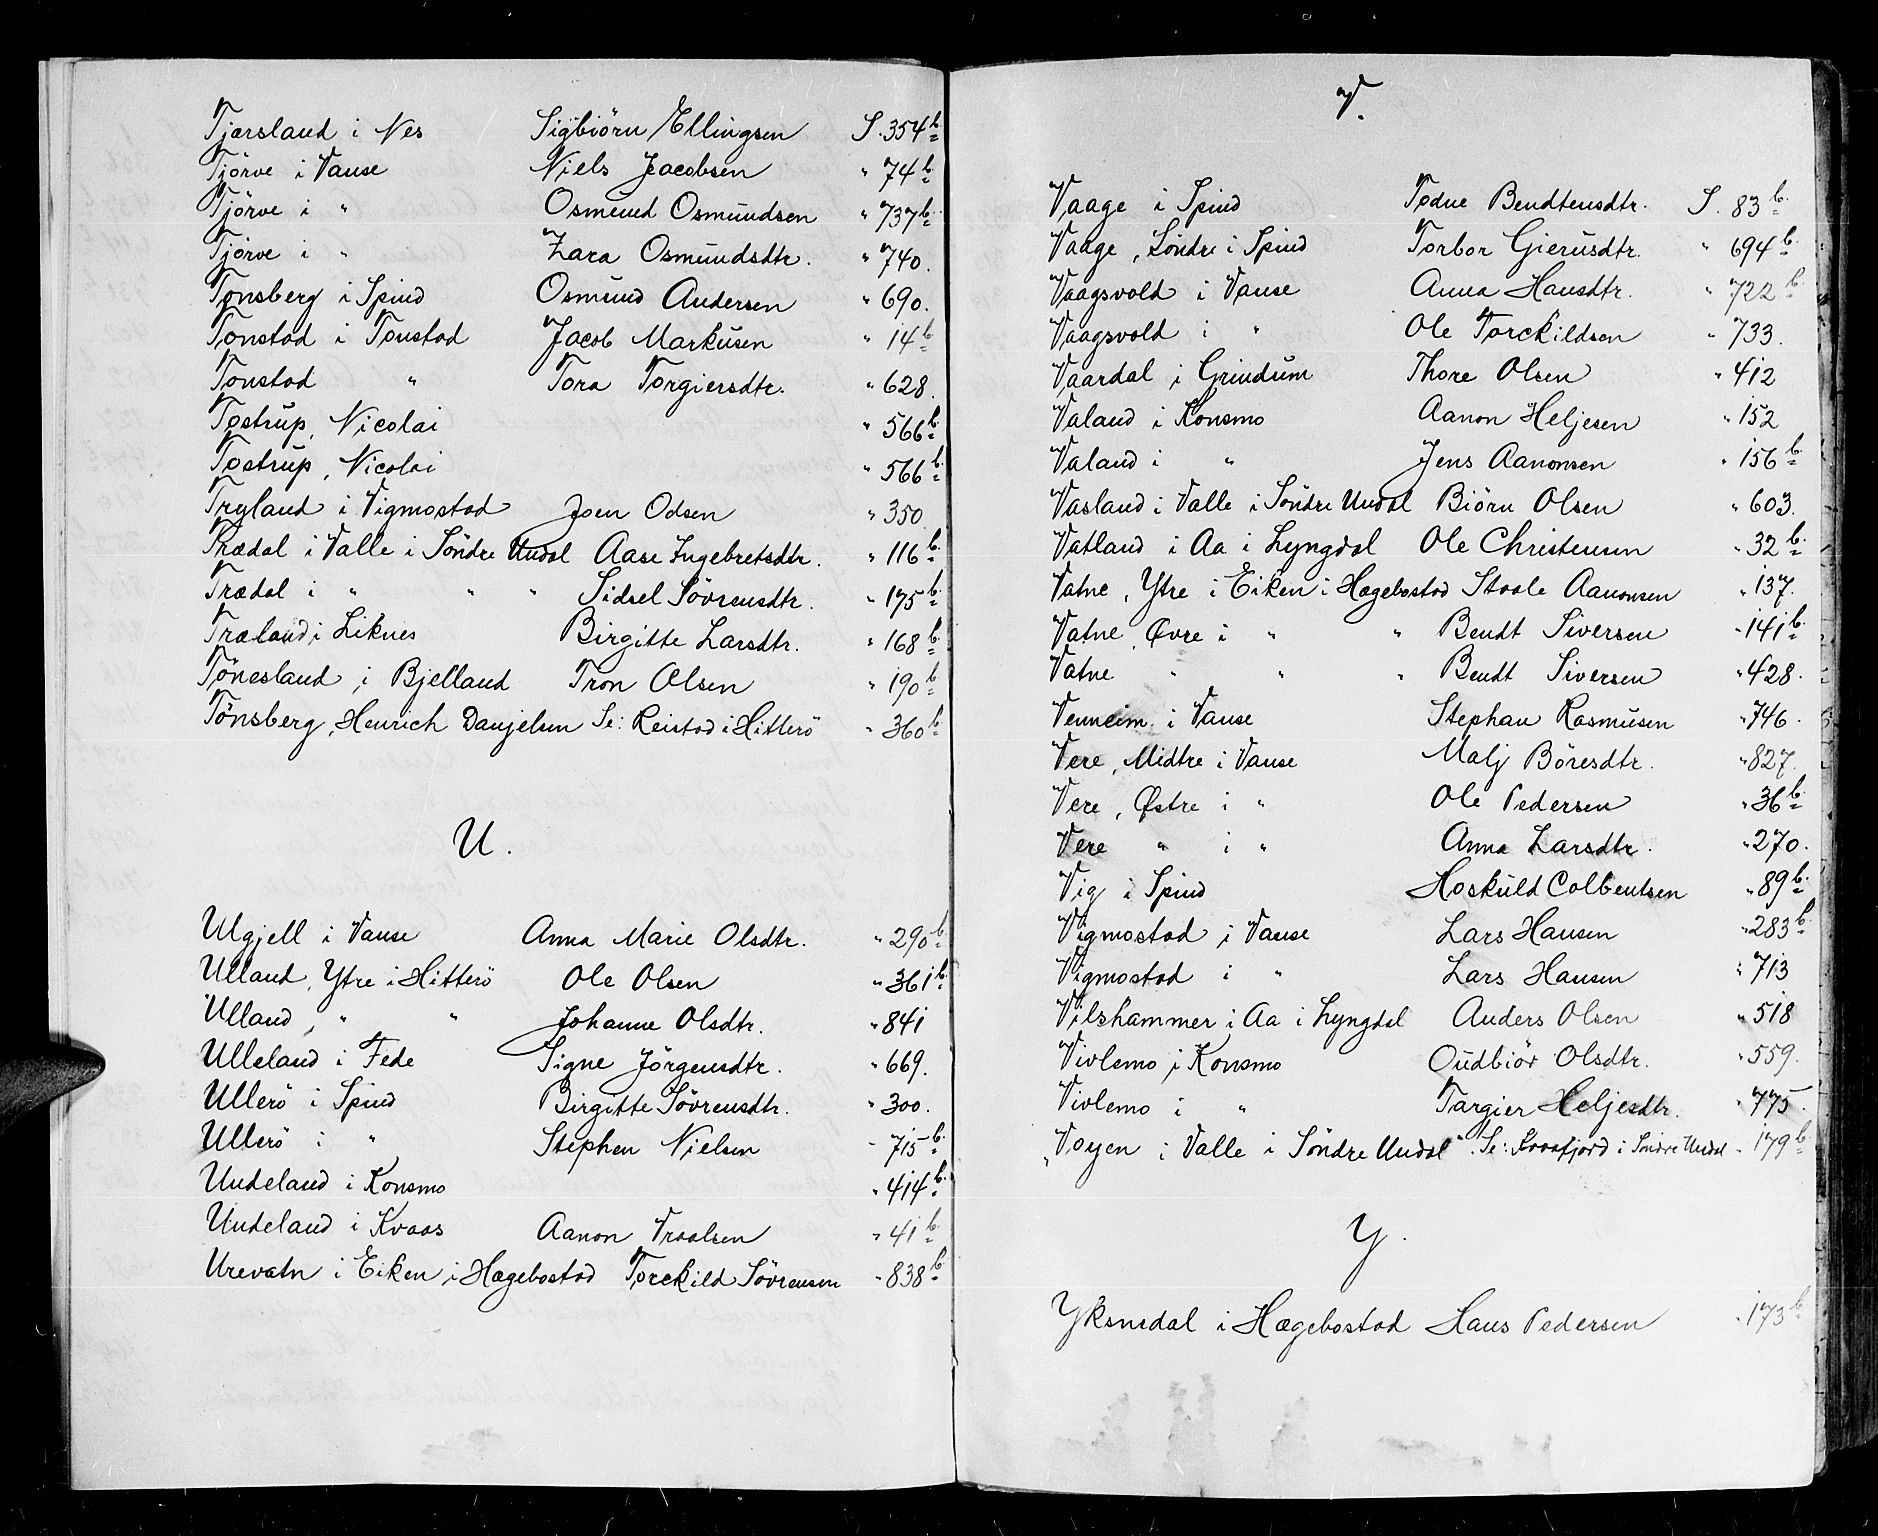 Tjersland i Nes Sigbiörn Ellingsen S. 354 b.
Tjörve i Vanse Niels Jacobsen " 74 b.
Tjörve i " Osmund Osmundsen " 737 b.
Tjörve i " Zara Osmundsdtr. " 740.
Tonsberg i Spind Osmund Andersen " 690.
Tonstad i Tonstad Jacob Markusen " 14 b
Tonstad " Tora Torgiersdtr. " 628.
Tostrup, Nicolai " 566 b.
Tostrup, Nicolai " 566 b.
Tryland i Vigmostad Joen Odsen " 350.
Trædal i Valle i Söndre Undal Aase Ingebretsdtr. " 116 b.
Trædal i " " " Sidsel Sövrensdtr. " 175 b.
Træland i Liknes Birgitte Larsdtr. " 168 b.
Tönesland i Bjelland Tron Olsen " 190 b.
Tönsberg, Henrich Danjelsen Se: Reistad i Hitterö " 360 b.
U.
Ulgjell i Vanse Anna Marie Olsdtr. " 290 b
Ulland, Ytre i Hitterö Ole Olsen " 361 b.
Ulland, " " Johanne Olsdtr. " 841
Ulleland i Fede Signe Jörgensdtr. " 669.
Ullerö i Spind Birgitte Sövrensdtr. " 300.
Ullerö i " Stephen Nielsen " 715 b.
Undeland i Konsmo " 414 b.
Undeland i Kvaas Aanon Vraalsen " 41 b.
Urevatn i Eiken i Hægebostad Torckild Sövrensen " 838 b.
V.
Vaage i Spind Todne Bendtensdtr. S. 83 b.
Vaage, Söndre i Spind Torbor Gierusdtr. " 694 b.
Vaagsvold i Vanse Anna Hansdtr. " 722 b.
Vaagsvold i " Ole Torckildsen " 733.
Vaardal i Grindum Thore Olsen " 412
Valand i Konsmo Aanon Heljesen " 152
Valand i " Jens Aanonsen " 156 b.
Vasland i Valle i Söndre Undal Biörn Olsen " 603.
Vatland i Aa i Lyngdal Ole Christensen " 32 b.
Vatne, Ytre i Eiken i Hægebostad Staale Aanonsen " 137.
Vatne, Øvre i " " Bendt Siversen " 141 b.
Vatne " " " Bendt Siversen " 428.
Venneim i Vanse Stephan Rasmusen " 746.
Vere, Midtre i Vanse Malj Böresdtr. " 827.
Vere, Østre i " Ole Pedersen " 36 b.
Vere " i " Anna Larsdtr. " 270.
Vig i Spind Hoskuld Colbentsen " 89 b.
Vigmostad i Vanse Lars Hansen " 283 b.
Vigmostad i " Lars Hansen " 713
Vilshammer i Aa i Lyngdal Anders Olsen " 518
Vivlemo i Konsmo Oudbiör Olsdtr. " 559.
Vivlemo i " Targier Heljesdtr. " 775.
"Voyen i Valle i Söndre Undal". Se: Fraafjord i Söndre Undal " 179 b.
Y.
Yksnedal i Hægebostad Hans Pedersen " 173 b